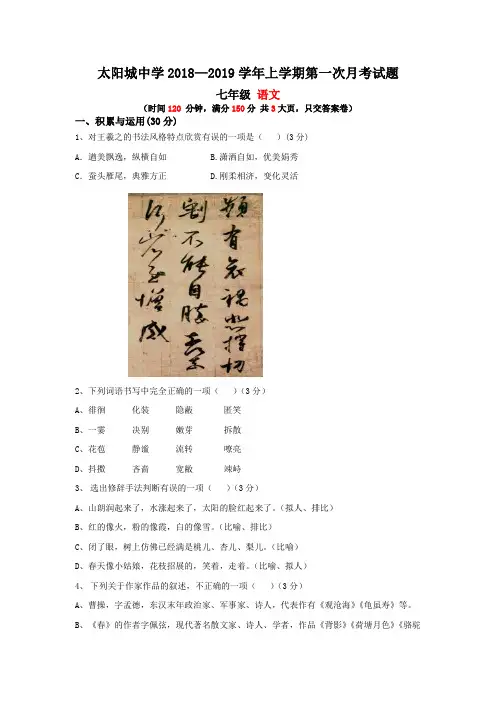 太阳城中学2018—2019学年上学期第一次月考试题
七年级 语文
（时间120 分钟，满分150分 共3大页，只交答案卷）
一、积累与运用(30分)
1、对王羲之的书法风格特点欣赏有误的一项是（ ）(3分)
A．遒美飘逸，纵横自如 B.潇洒自如，优美娟秀
C．蚕头雁尾，典雅方正 D.刚柔相济，变化灵活
頻有哀禍悲摧切
割不能自勝奈何
省慰增感
2、下列词语书写中完全正确的一项（ ）（3分）
A、徘徊 化装 隐蔽 匿笑
B、一霎 决别 嫩芽 拆散
C、花苞 静谧 流转 嘹亮
D、抖擞 吝啬 宽敞 竦峙
3、 选出修辞手法判断有误的一项（ ）（3分）
A、山朗润起来了，水涨起来了，太阳的脸红起来了。（拟人、排比）
B、红的像火，粉的像霞，白的像雪。（比喻、排比）
C、闭了眼，树上仿佛已经满是桃儿、杏儿、梨儿。（比喻）
D、春天像小姑娘，花枝招展的，笑着，走着。（比喻、拟人）
4、 下列关于作家作品的叙述，不正确的一项（ ）（3分）
A、曹操，字孟德，东汉末年政治家、军事家、诗人，代表作有《观沧海》《龟虽寿》等。
B、《春》的作者字佩弦，现代著名散文家、诗人、学者，作品《背影》《荷塘月色》《骆驼